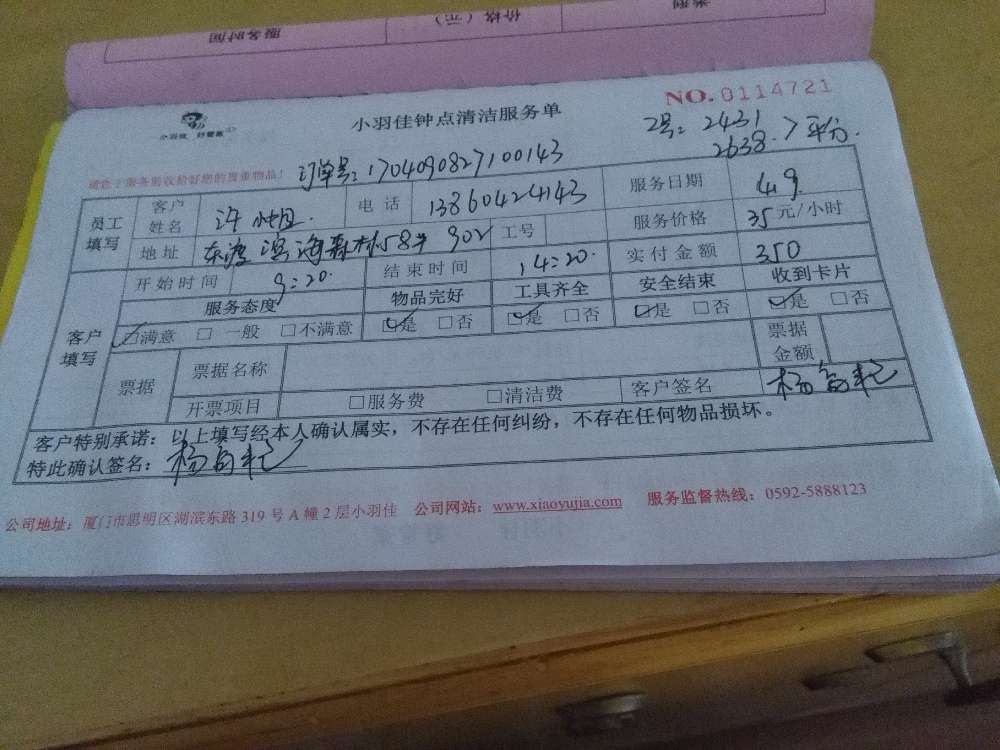 类型
价格（元）
服务时间
NO.0114721
小羽佳钟点清洁服务单
小羽佳 好管家
工号：2431
2638.7平分.
订单号：1704090827100143
员工填写 客户姓名 许小姐. 电话 13860424143 服务日期 4.9.
地址 东渡 滨海森林58# 902 工号 服务价格 35元/小时
客户填写 开始时间 9:20. 结束时间 14:20. 实付金额 350
服务态度 物品完好 工具齐全 安全结束 收到卡片
☑满意 □一般 □不满意 ☑是 □否 ☑是 □否 ☑是 □否 ☑是 □否
票据 票据名称 票据金额
开票项目 □服务费 □清洁费 客户签名
客户特别承诺：以上填写经本人确认属实，不存在任何纠纷，不存在任何物品损坏。
特此确认签名：
公司地址：厦门市思明区湖滨东路319号A幢2层小羽佳 公司网站：www.xiaoyujia.com 服务监督热线：0592-5888123